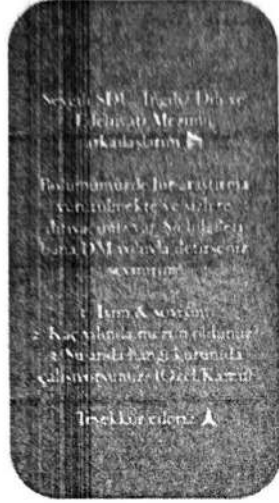 Sevgili SDÜ İngiliz Dili ve
Edebiyatı Mezunu
arkadaşlarım
Bölümümüzde bir araştırma
yürütülmekte ve sizlere
ihtiyacımız var. Şu bilgileri
bana DM yoluyla iletirseniz
sevinirim!
1. İsim & soyisim
2. Kaç yılında mezun oldunuz?
3. Şu anda hangi kurumda
çalışıyorsunuz? (Özel/Kamu)
Teşekkür ederiz